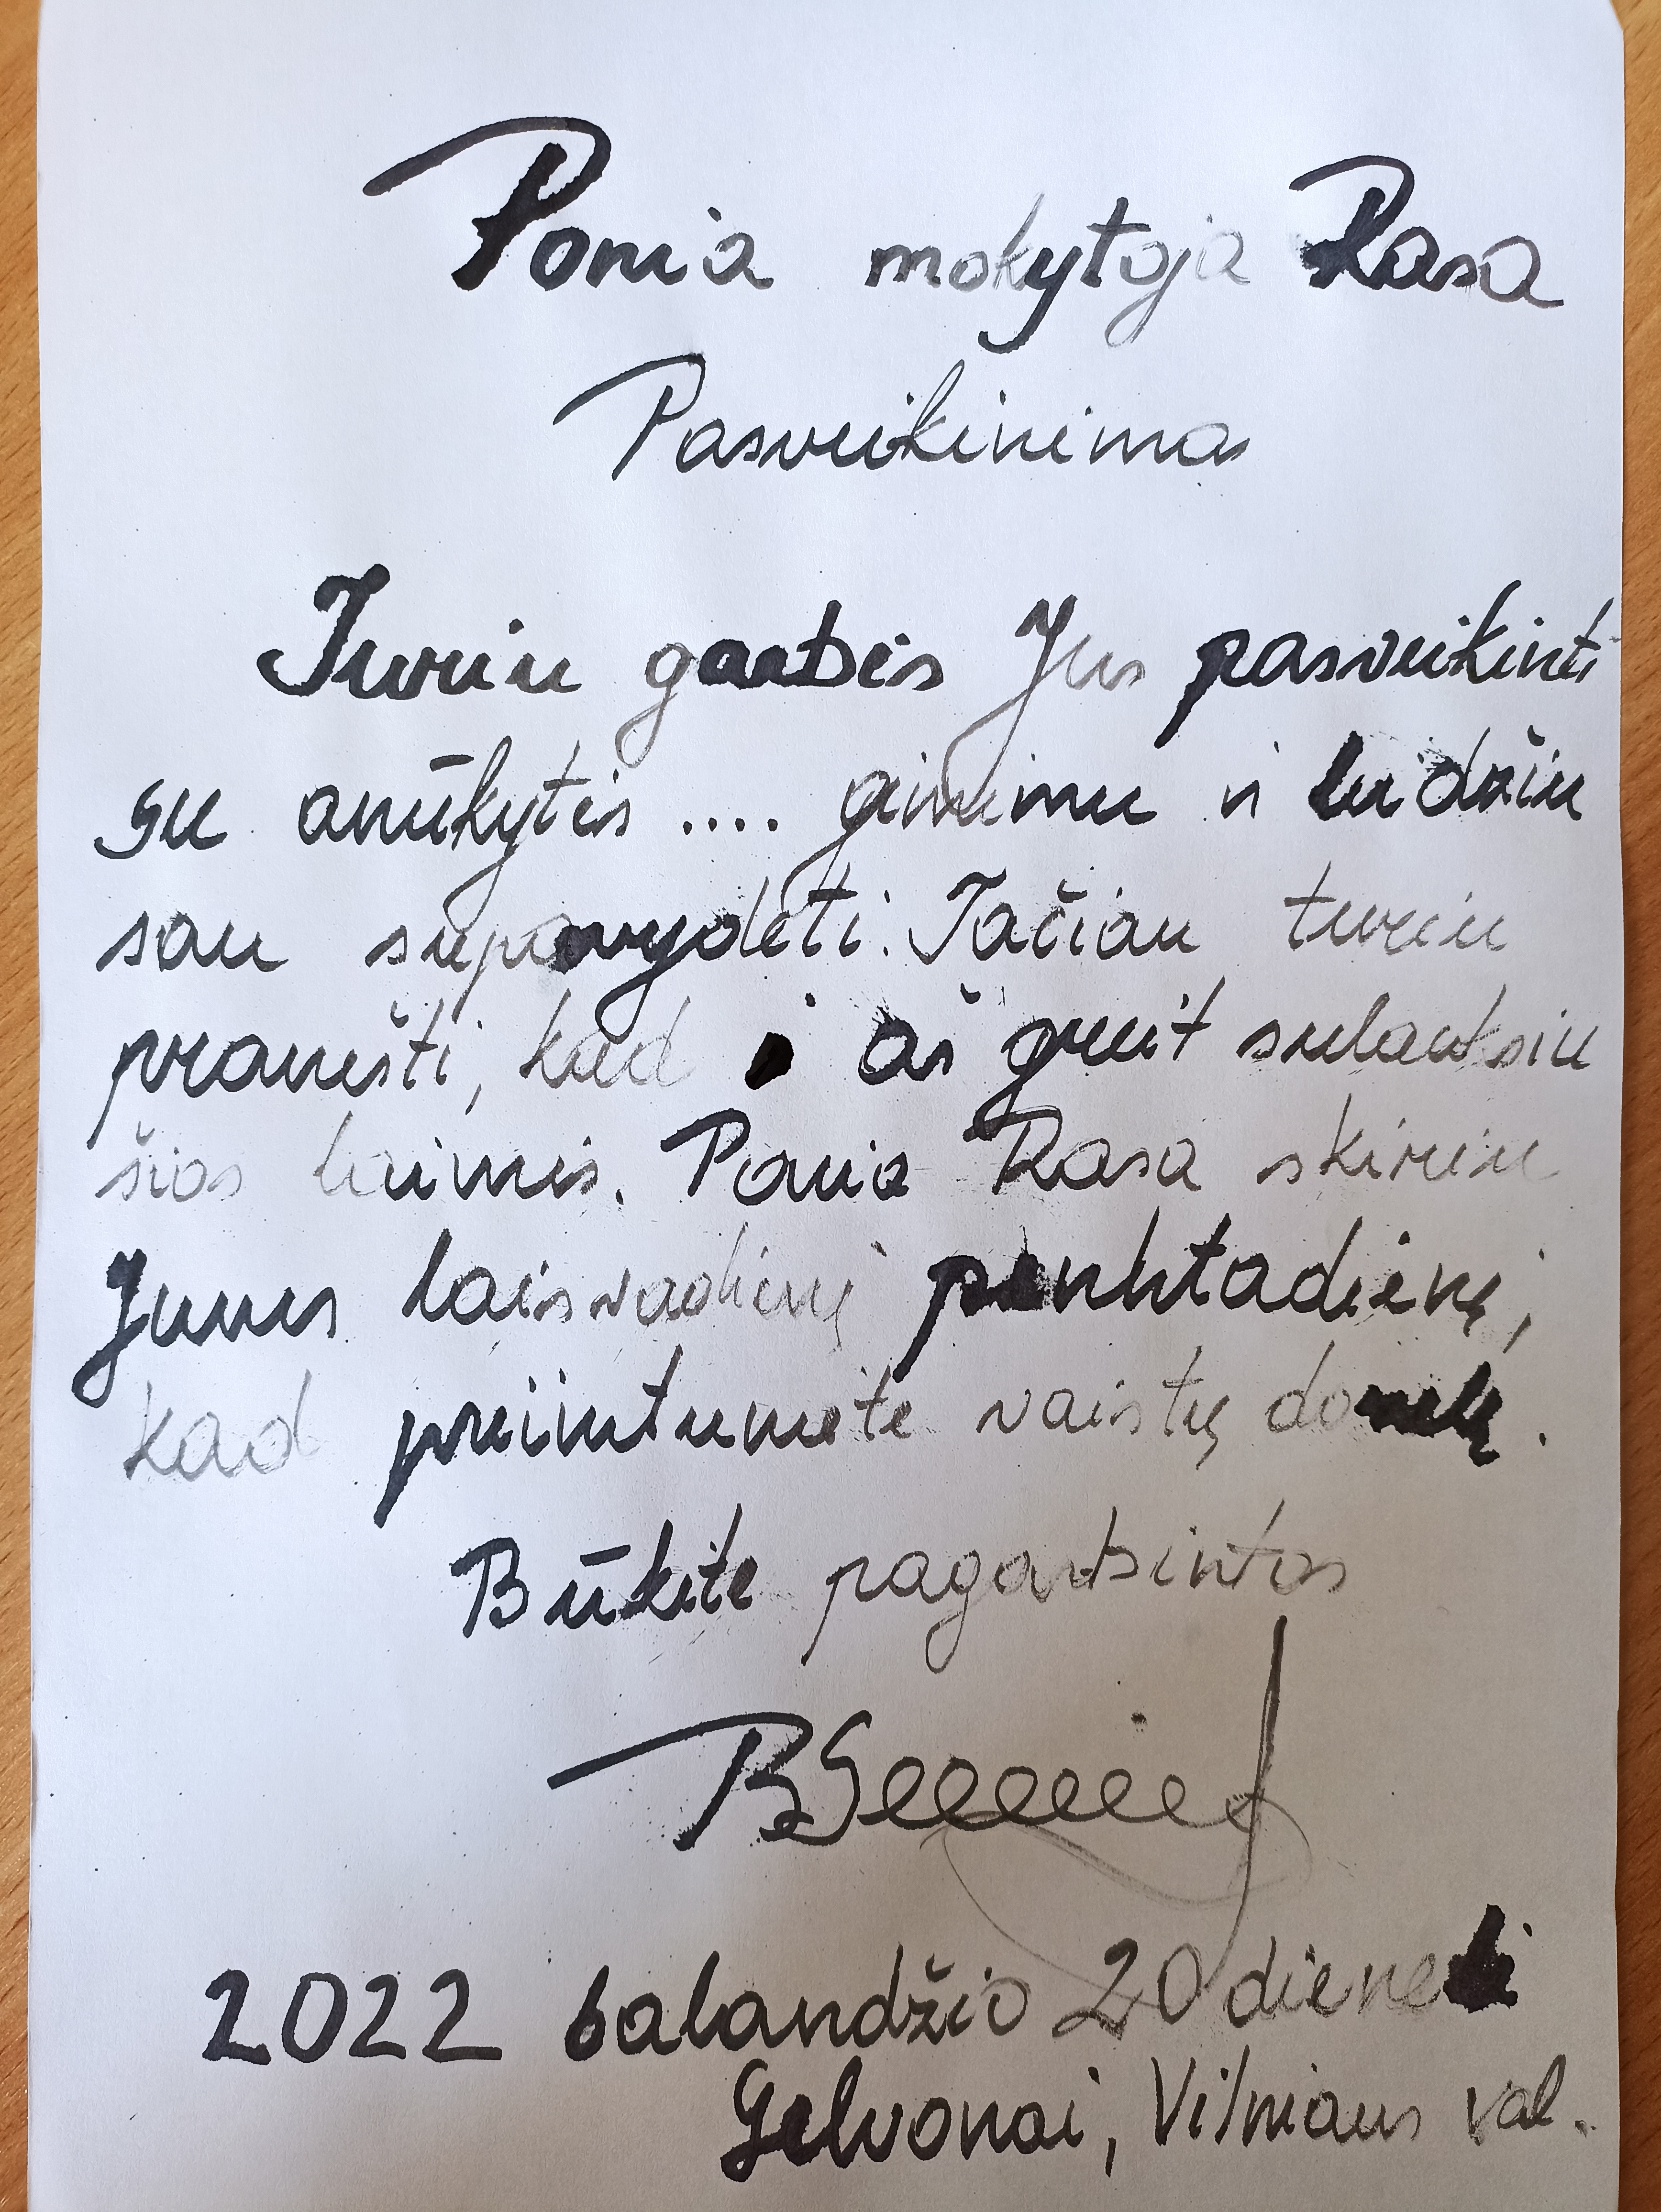 Ponia mokytoja Rasa
Pasveikinimas
Turiu garbės Jus pasveikinti
su anūkytės .... gimimu ir leidžiu
sau supavydėti. Tačiau turiu
pranešti, kad aš greit sulauksiu
šios laimės. Ponia Rasa skiriu
Jums laisvadienį penktadienį,
kad priimtumėte vaistų
Būkite pagarbintos
2022 balandžio 20 dienelė
Gelvonai, Vilniaus val.